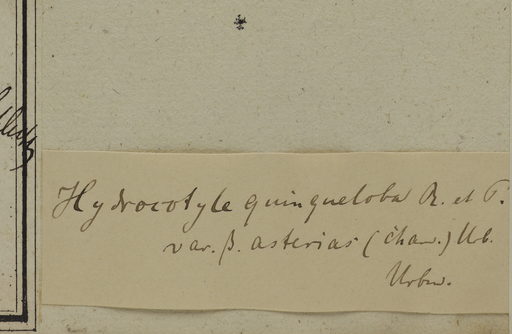 Hydrocotyle quinqueloba R. et P.
var. β. asterias (Cham.) Urb.
Urban.